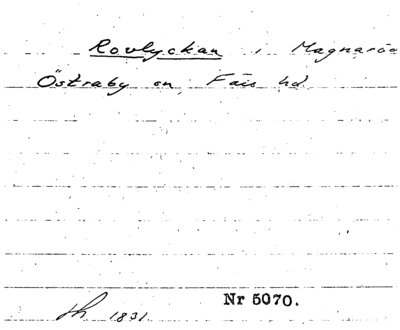 Rovlyckan i Magnarö
Östraby sn, Färs hd
Nr 5070.
1831